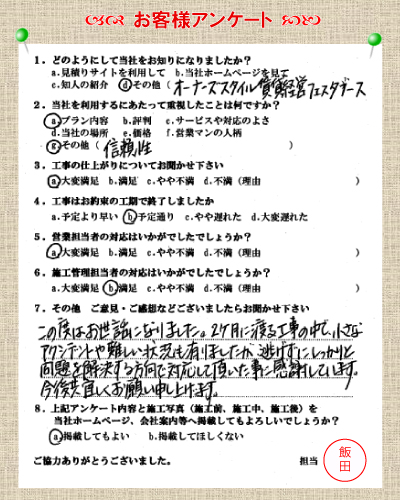 お客様アンケート
1．どのようにして当社をお知りになりましたか？
a.見積りサイトを利用して b.当社ホームページを見て
c.知人の紹介 ⓓその他（オーナーズスタイル賃貸経営フェスタブース
2．当社を利用するにあたって重視したことは何ですか？
ⓐプラン内容 b.評判 c.サービスや対応のよさ
d.当社の場所 e.価格 f.営業マンの人柄
ⓖその他（ 信頼性 ）
3．工事の仕上がりについてお聞かせ下さい
ⓐ大変満足 b.満足 c.やや不満 d.不満（理由 ）
4．工事はお約束の工期で終了しましたか
a.予定より早い ⓑ予定通り c.やや遅れた d.大変遅れた
5．営業担当者の対応はいかがでしたでしょうか？
ⓐ大変満足 b.満足 c.やや不満 d.不満（理由 ）
6．施工管理担当者の対応はいかがでしたでしょうか？
a.大変満足 ⓑ満足 c.やや不満 d.不満（理由 ）
7．その他 ご意見・ご感想などございましたらお聞かせ下さい
この度はお世話になりました。2ケ月に渡る工事の中で、小さな
アクシデントや難しい状況も有りましたが、逃げずにしっかりと
問題を解決する方向で対応して頂いた事に感謝しています。
今後共宜しくお願い申し上げます。
8．上記アンケート内容と施工写真（施工前、施工中、施工後）を
当社ホームページ、会社案内等へ掲載してもよろしいでしょうか？
ⓐ掲載してもよい b.掲載してほしくない
ご協力ありがとうございました。 担当 飯田